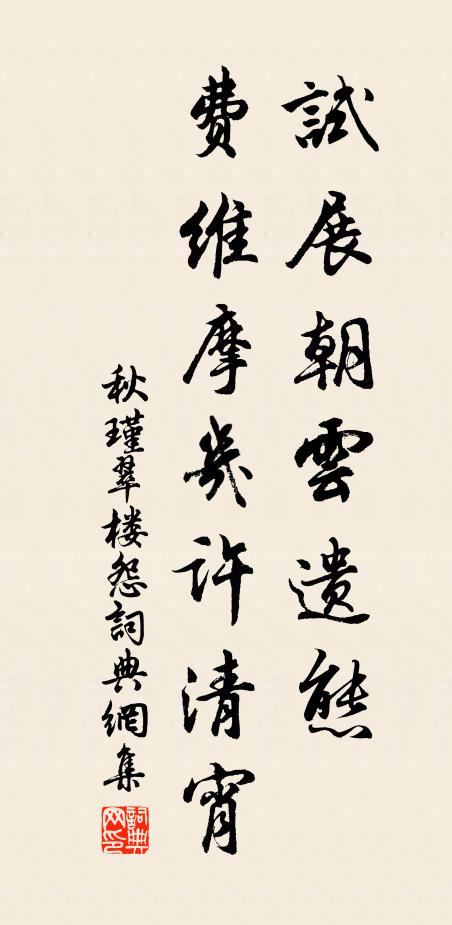 試展朝雲遺態
费維摩幾許清宵
秋瑾翠楼怨詞典網集
詞典网印